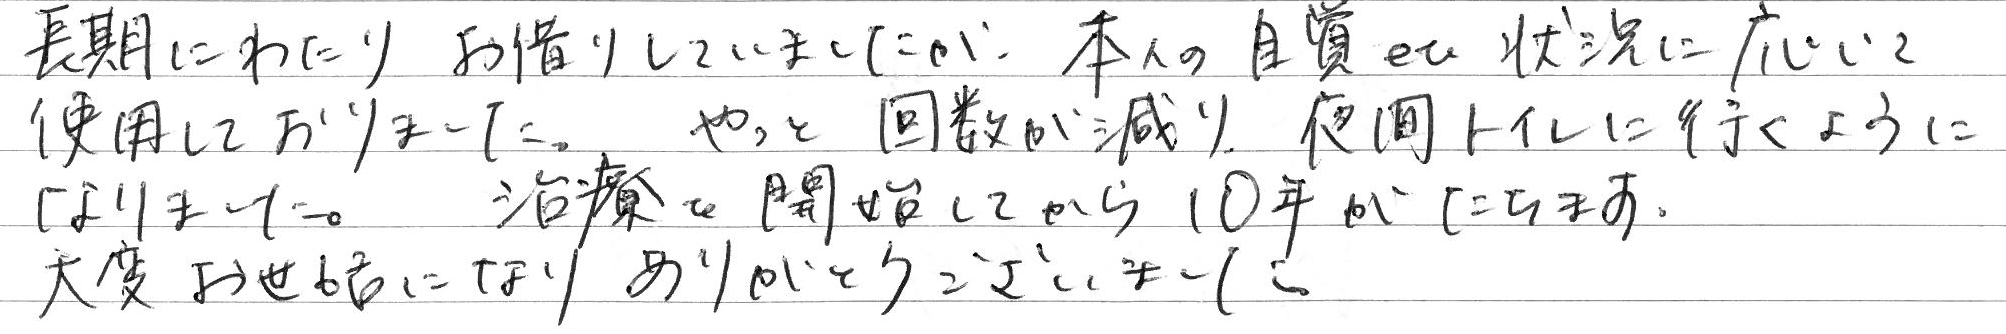 長期にわたり お借りしていましたが、本人の自覚や状況に応じて
使用しておりました。 やっと 回数が減り、夜間トイレに行くように
なりました。 治療を開始してから10年がたちます。
大変お世話になり ありがとうございました